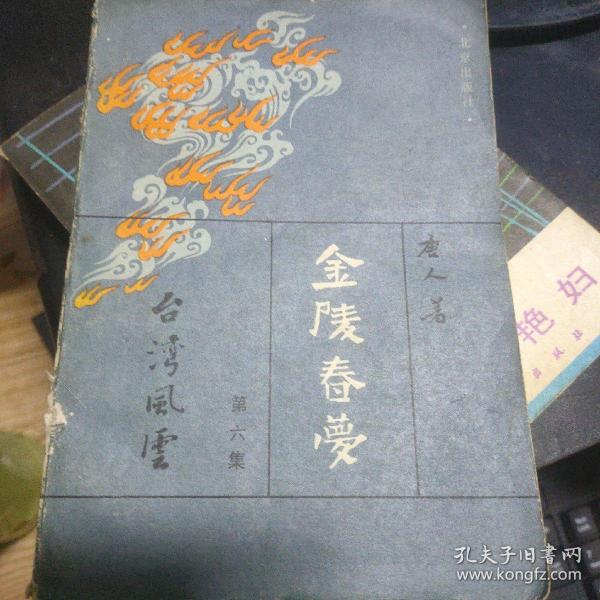 ·北京出版社·
唐人著
金陵春夢
第六集
台湾風雲
艳妇
出版社
孔夫子旧书网
www.kongfz.com